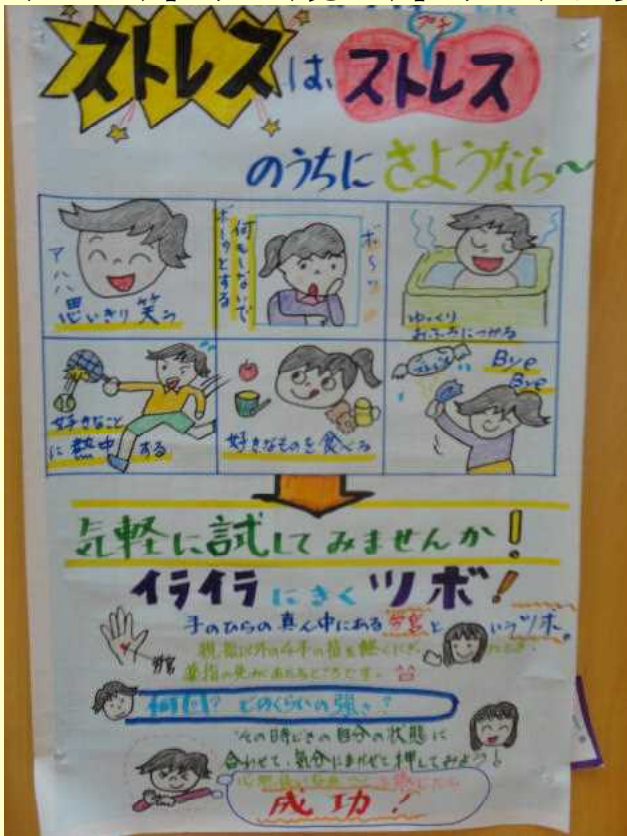 ストレスは、プチストレス
のうちにさようなら～
アハハ
思いきり笑う
何もしないで
ボーッとする
ボーッ
ゆっくり
おふろにつかる
好きなこと
に熱中する
好きなものを食べる
ストレス
Bye
Bye
気軽に試してみませんか!
イライラにきくツボ!
手のひらの真ん中にある労宮というツボ。
労宮
親指以外の4本の指を軽くにぎ
薬指の先があたるところです。
何回?どのくらいの強さ?
その時どきの自分の状態に
合わせて、気分にまかせて押してみよう!
成功!